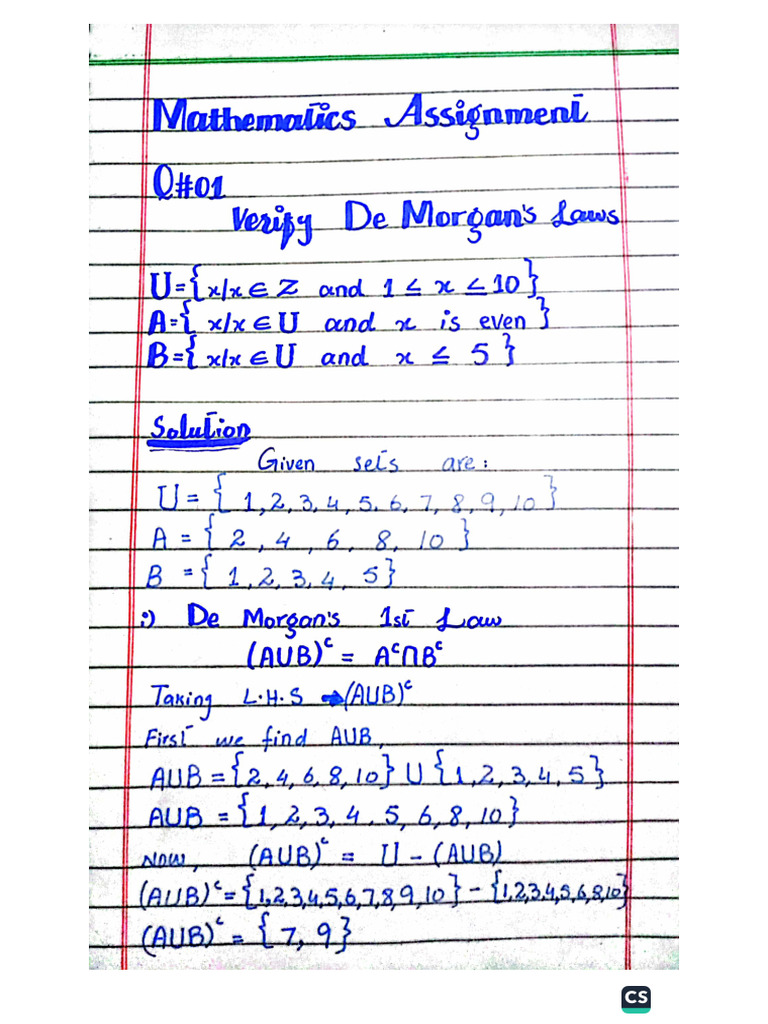 Mathematics Assignment
Q#01
Verify De Morgan's Laws
U={x/x∈Z and 1≤x≤10}
A={x/x∈U and x is even}
B={x/x∈U and x ≤ 5}
Solution
Given sets are:
U={1,2,3,4,5,6,7,8,9,10}
A={2,4,6,8,10}
B={1,2,3,4,5}
:) De Morgan's 1st Law
(AUB)ᶜ = Aᶜ∩Bᶜ
Taking L.H.S → (AUB)ᶜ
First we find AUB,
AUB={2,4,6,8,10}U{1,2,3,4,5}
AUB={1,2,3,4,5,6,8,10}
Now, (AUB)ᶜ = U-(AUB)
(AUB)ᶜ={1,2,3,4,5,6,7,8,9,10}-{1,2,3,4,5,6,8,10}
(AUB)ᶜ={7,9}
CS